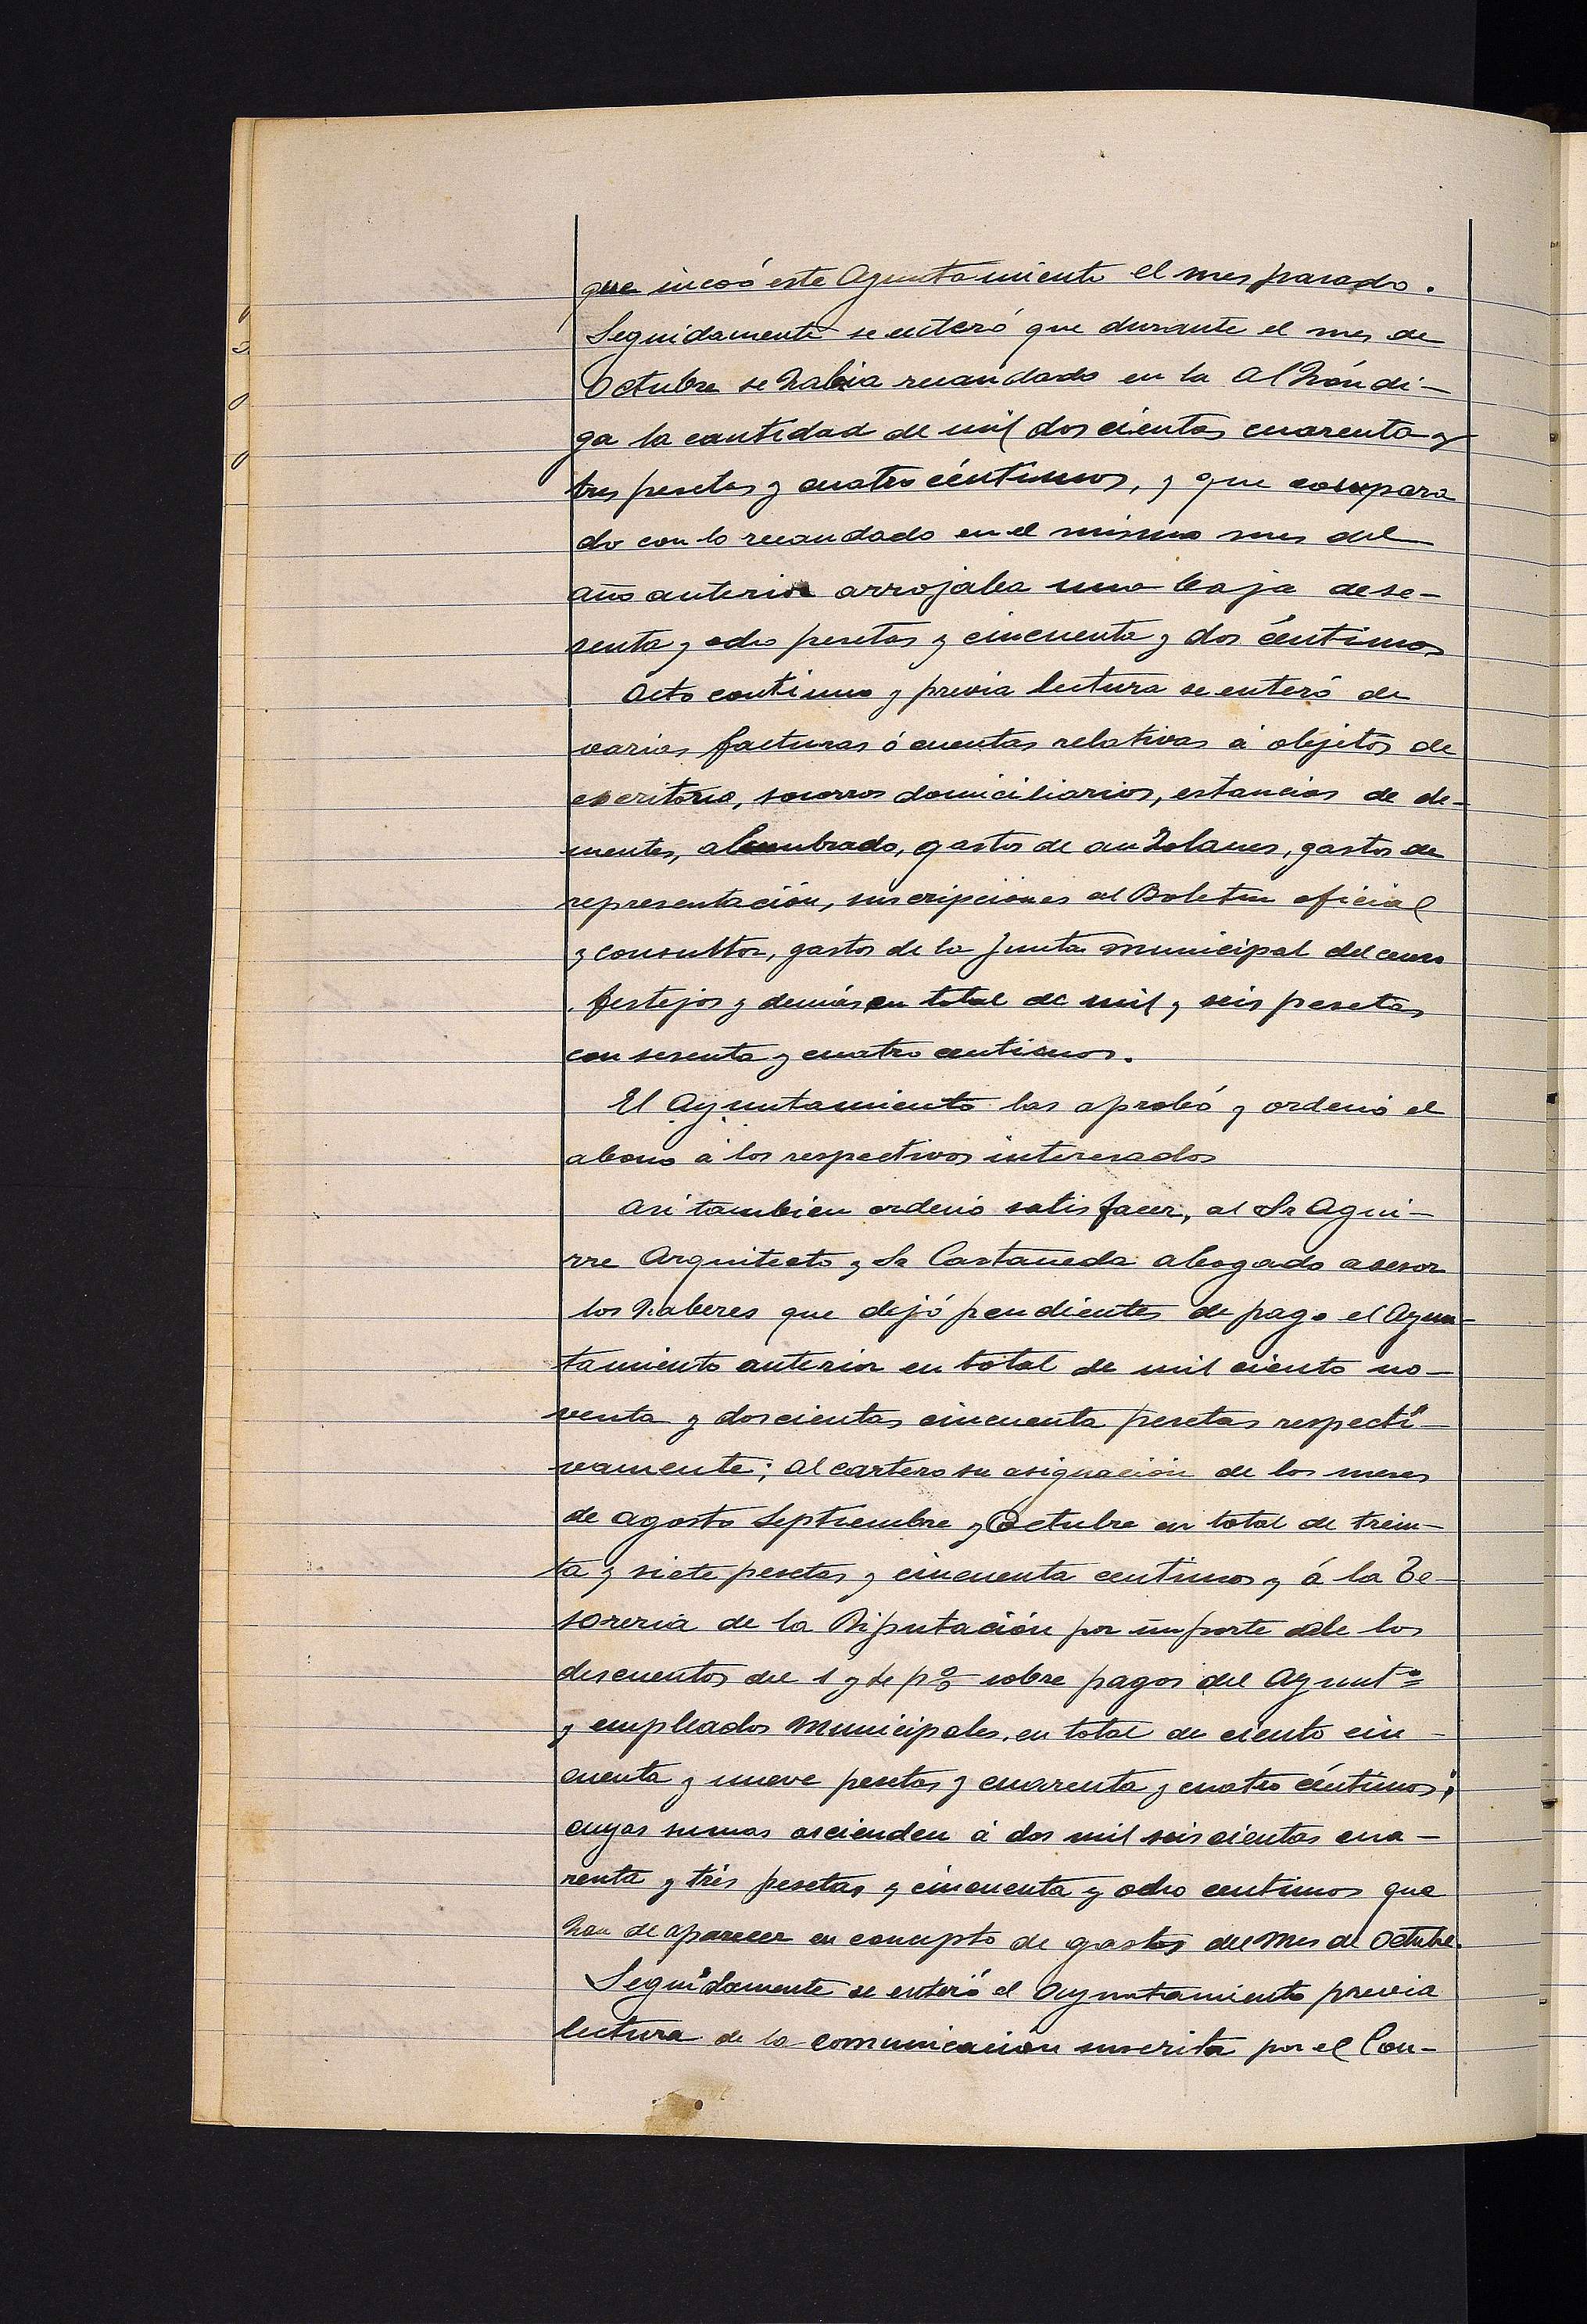 que incoó este Ayuntamiento el mes pasado.
Seguidamente se enteró que durante el mes de
Octubre se habia recaudado en la Alhóndi-
ga la cantidad de mil doscientas cuarenta y
tres pesetas y cuatro céntimos, y que compara
do con lo recaudado en el mismo mes del
año anterior arrojaba una baja de se-
senta y ocho pesetas y cincuenta y dos céntimos
Acto continuo y previa lectura se enteró de
varias facturas ó cuentas relativas á objetos de
escritorio, socorros domiciliarios, estancias de de-
mentes, alumbrado, gastos de anzolanes, gastos de
representación, suscripciones al Boletin oficial
y consultor, gastos de la Junta municipal del censo
festejos y demás en total de mil y seis pesetas
con sesenta y cuatro centimos.
El Ayuntamiento las aprobó y ordenó el
abono á los respectivos interesados
Asi tambien ordenó satisfacer, al Sr Agui-
rre Arquitecto y Sr Castañeda abogado asesor
los haberes que dejó pendientes de pago el Ayun-
tamiento anterior en total de mil ciento no-
venta y doscientas cincuenta pesetas respecti-
vamente; al cartero su asignación de los meses
de agosto Septiembre y Octubre en total de trein-
ta y siete pesetas y cincuenta centimos y á la Te-
soreria de la Diputación por importe de los
descuentos del 1 y de pº sobre pagos del Ayuntº
y empleados municipales, en total de ciento cin-
cuenta y nueve pesetas y cuarenta y cuatro céntimos;
cuyas sumas ascienden á dos mil seiscientas cua-
renta y trés pesetas y cincuenta y ocho centimos que
han de aparecer en concepto de gastos del mes de Octubre.
Seguidamente se enteró el Ayuntamiento previa
lectura de la comunicación suscrita por el Con-